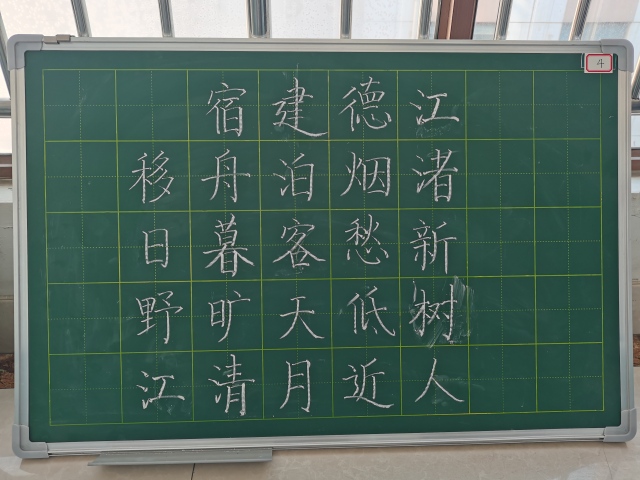 4
宿建德江
移舟泊烟渚
日暮客愁新
野旷天低树
江清月近人